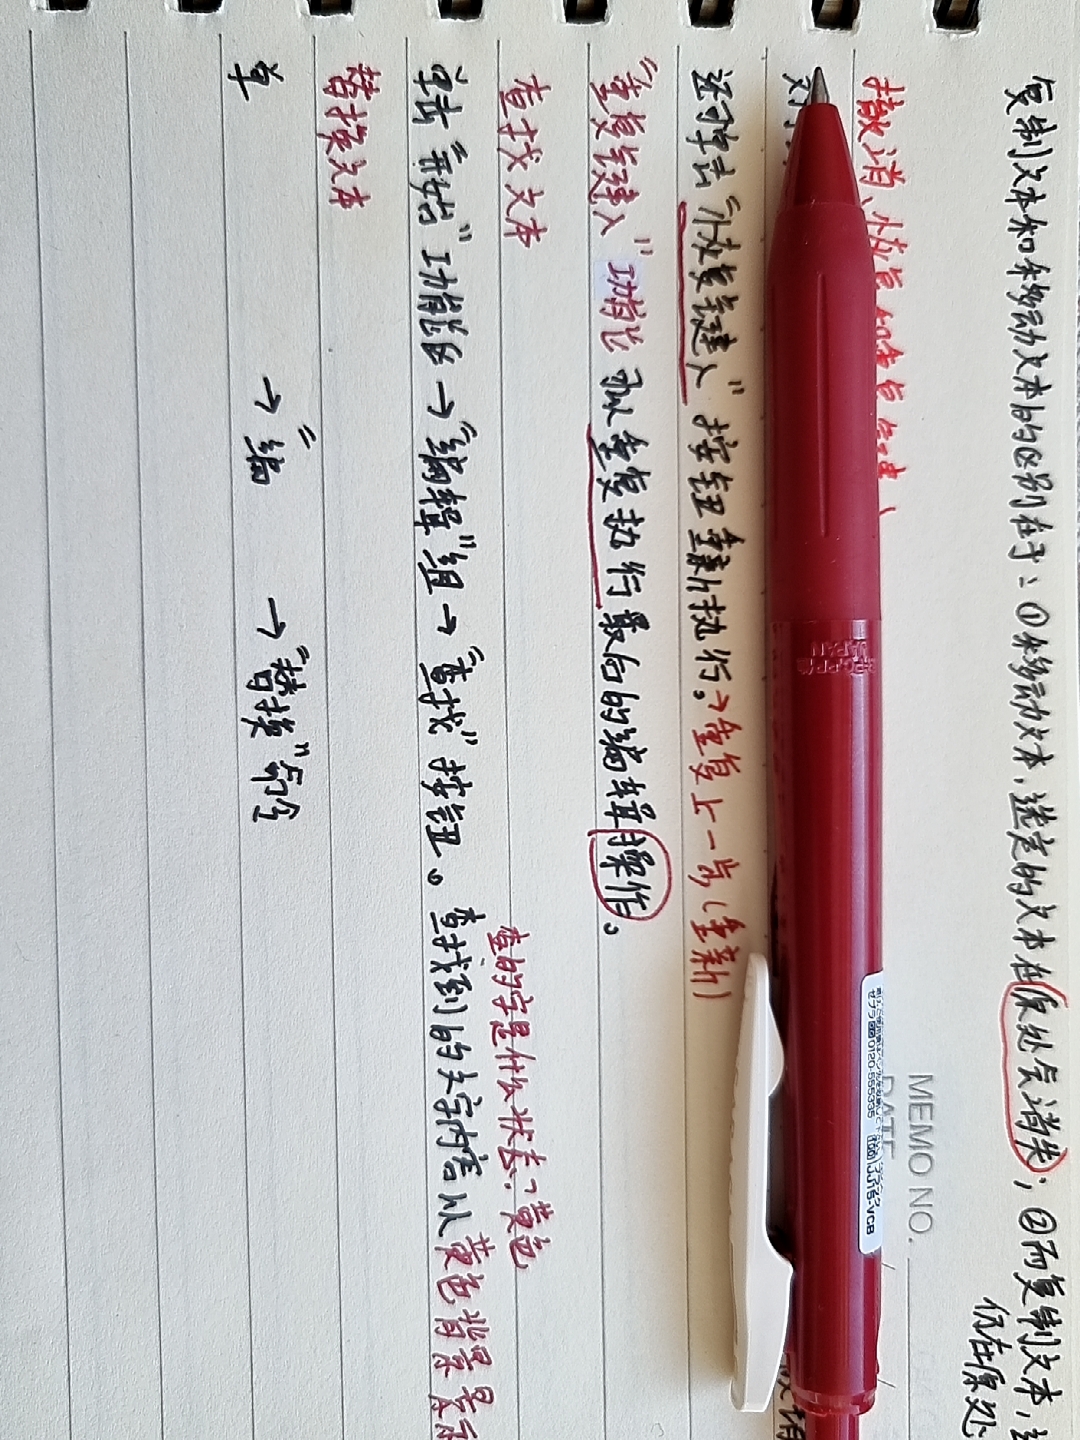 复制文本和移动文本的区别在于：①移动文本，选定的文本在原处会消失；②而复制文本，
仍在原处
MEMO NO.
DATE
撤消、恢复和重复键入
对
还可单击“恢复键入”按钮重新执行。>重复上一步（重新）
“重复键入”功能可以重复执行最后的编辑操作。
查找文本
查的字是什么状态？黄色
单击“开始”功能区→“编辑”组→“查找”按钮。查找到的文字内容以黄色背景显示
替换文本
单
→“编
→“替换”命令
JAPAN
ゼブラ 0120-555335
100 JJ15-VCB